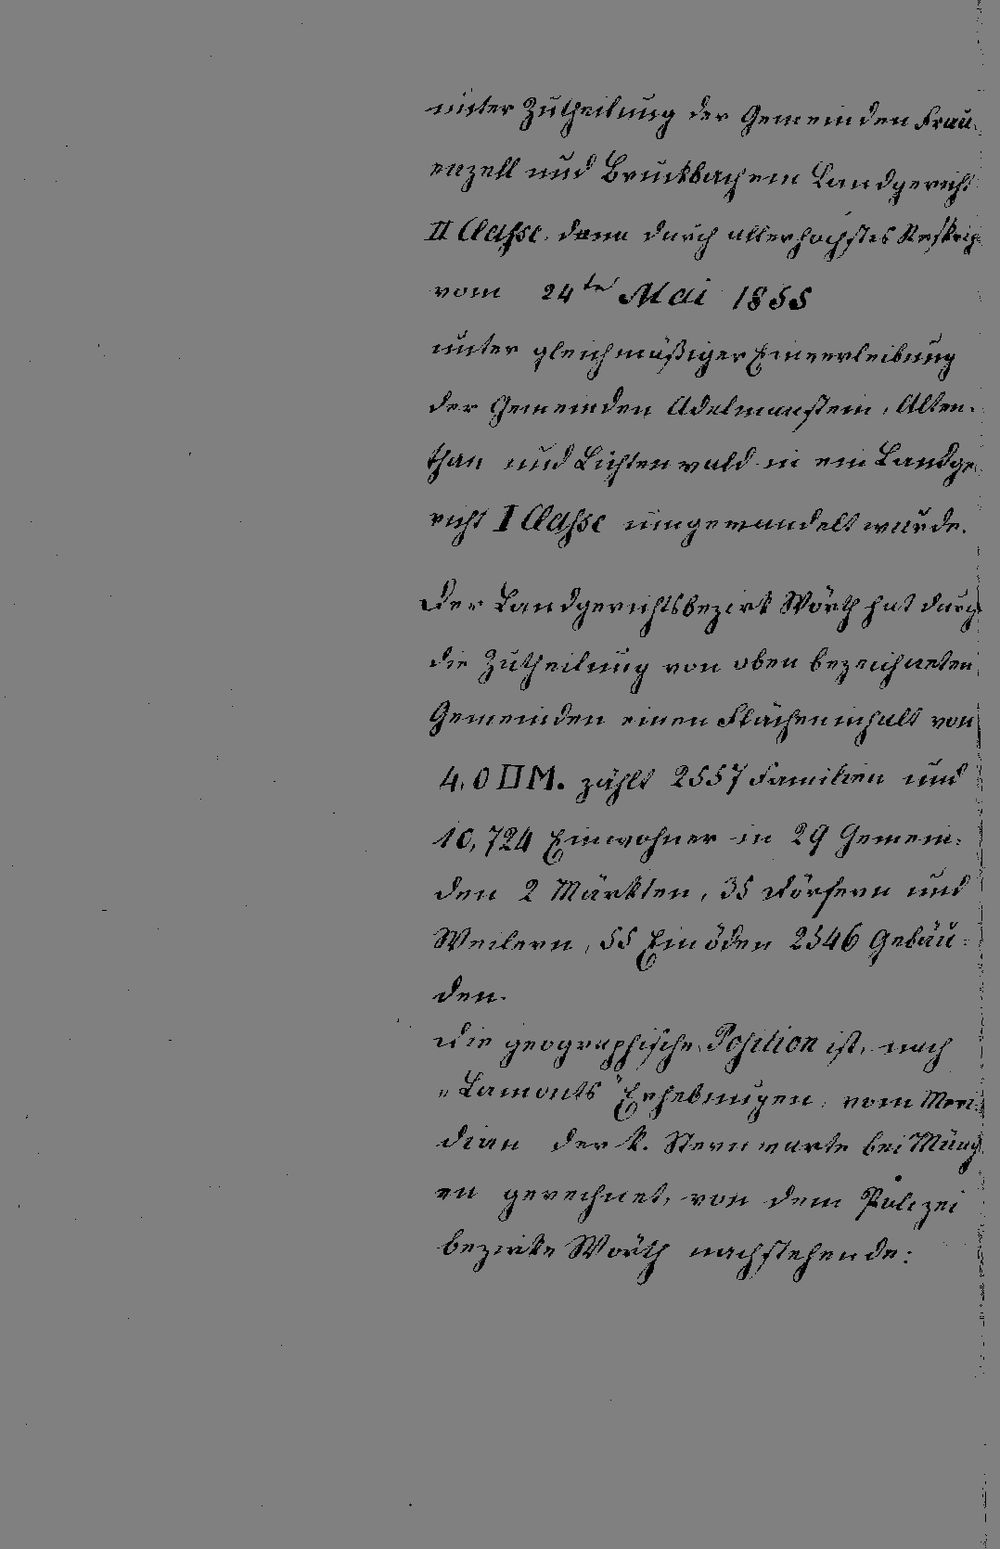 unter Zutheilung der Gemeinden Frau-
enzell und Bruckbach ein Landgericht
II Classe, dann durch allerhöchstes Reskrip
vom 24te Mai 1855
unter gleichmäßiger Einverleibung
der Gemeinden Adelmanstein, Alten-
than und Lichtenwald in ein Landge-
richt I Classe umgewandelt wurde.
Der Landgerichtsbezirk Wörth hat durch
die Zutheilung von oben bezeichneten
Gemeinden einen Flächeninhalt von
4,0 □M. zählt 2557 Familien und
10,724 Einwohner in 29 Gemein-
den 2 Märkten, 35 Dörfern und
Weilern, 55 Einöden 2546 Gebäu-
den.
Die geographische Position ist, nach
„Lamonts" Erhebungen, vom Meri-
dian der k. Sternwarte bei Münch
en gerechnet, von dem Polizei
bezirke Wörth nachstehende: